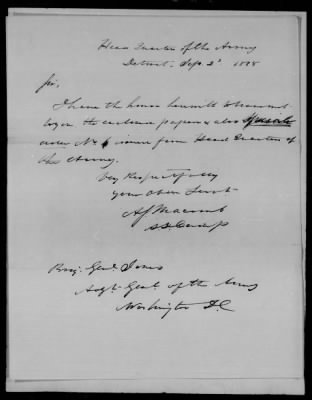 Head Quarter of the Army
Detroit, Sep. 2d 1838
Sir,
I have the honor herewith to transmit
to you the enclosed papers & also
order No. 6 issued from Head Quarters of
the Army.
Very Respectfully
your Obdt Servt
A. S. Macomb
A. D. Camp
Brig. Genl. Jones
Adgt. Genl. of the Army
Washington D.C.